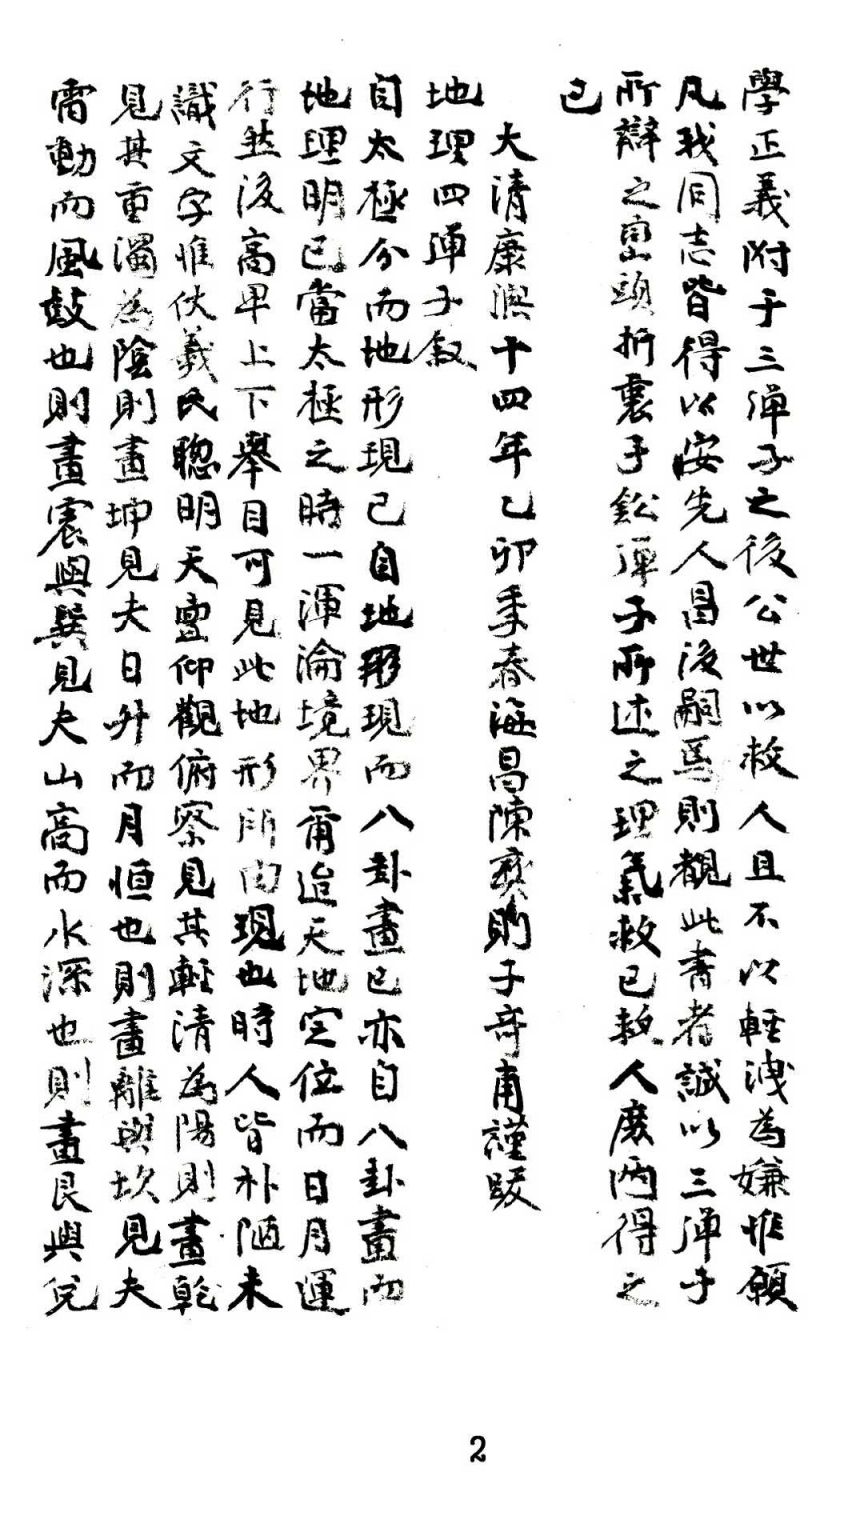 學正義附于三彈子之後公世以救人且不以輕洩為嫌惟願
凡我同志皆得以安先人昌後嗣焉則觀此書者誠以三彈子
所辯之巒頭折衷于鉛彈子所述之理氣救已救人庶兩得之
已
大清康熙十四年乙卯季春海昌陳爽則子奇甫謹跋
地理四彈子敘
自太極分而地形現已自地形現而八卦畫已亦自八卦畫而
地理明已當太極之時一渾淪境界爾迨天地定位而日月運
行然後高卑上下舉目可見此地形所由現也時人皆朴陋未
識文字惟伏羲氏聰明天亶仰觀俯察見其輕清為陽則畫乾
見其重濁為陰則畫坤見夫日升而月恒也則畫離與坎見夫
雷動而風鼓也則畫震與巽見夫山高而水深也則畫艮與兌
2